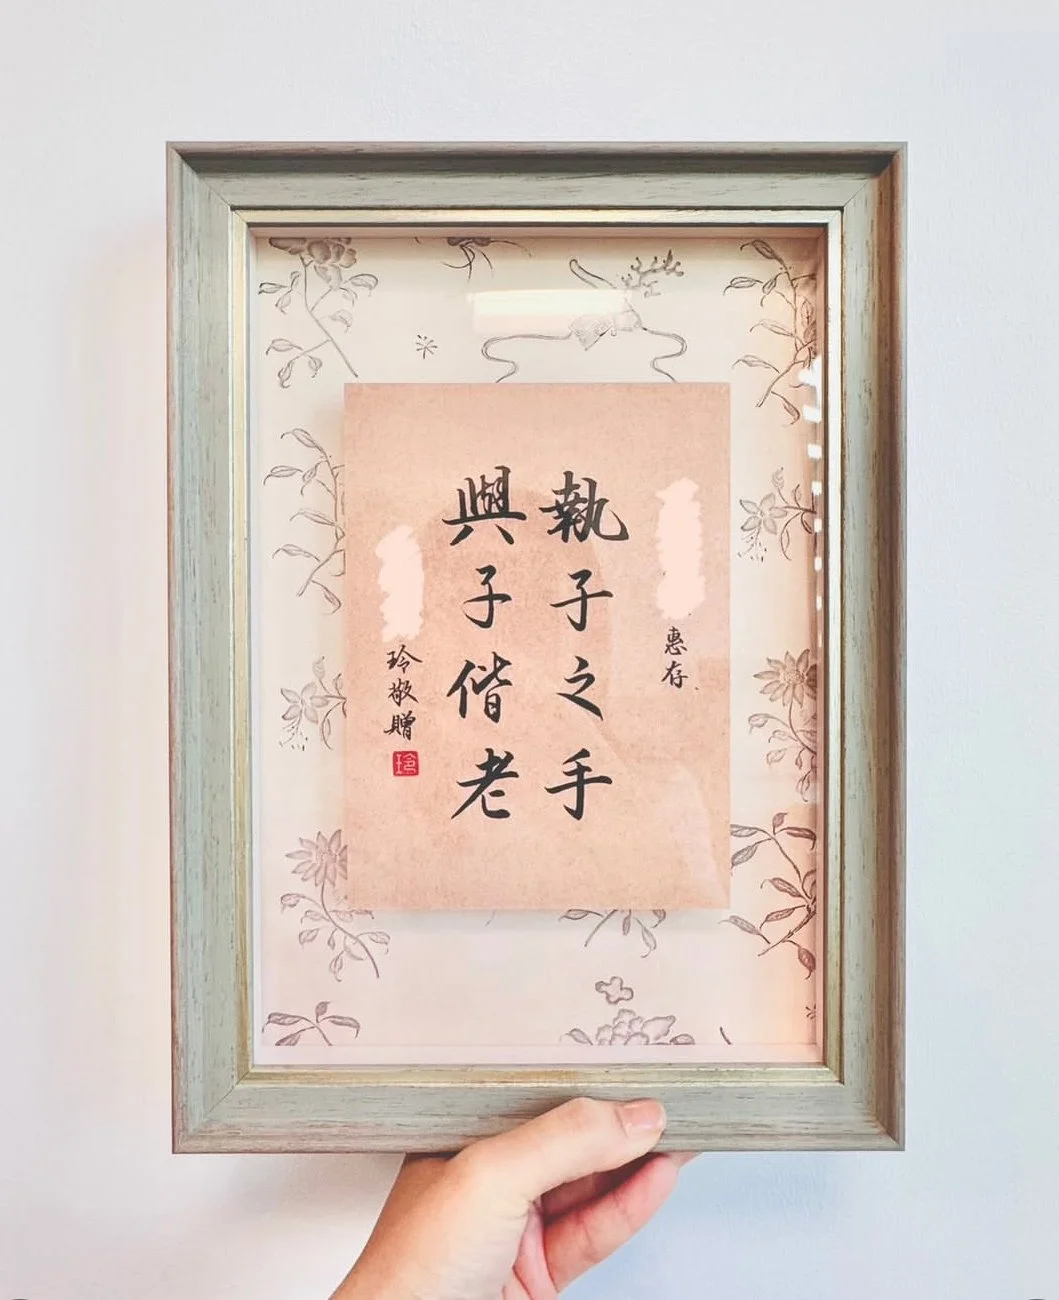 惠存
執子之手
與子偕老
玲敬贈
玲